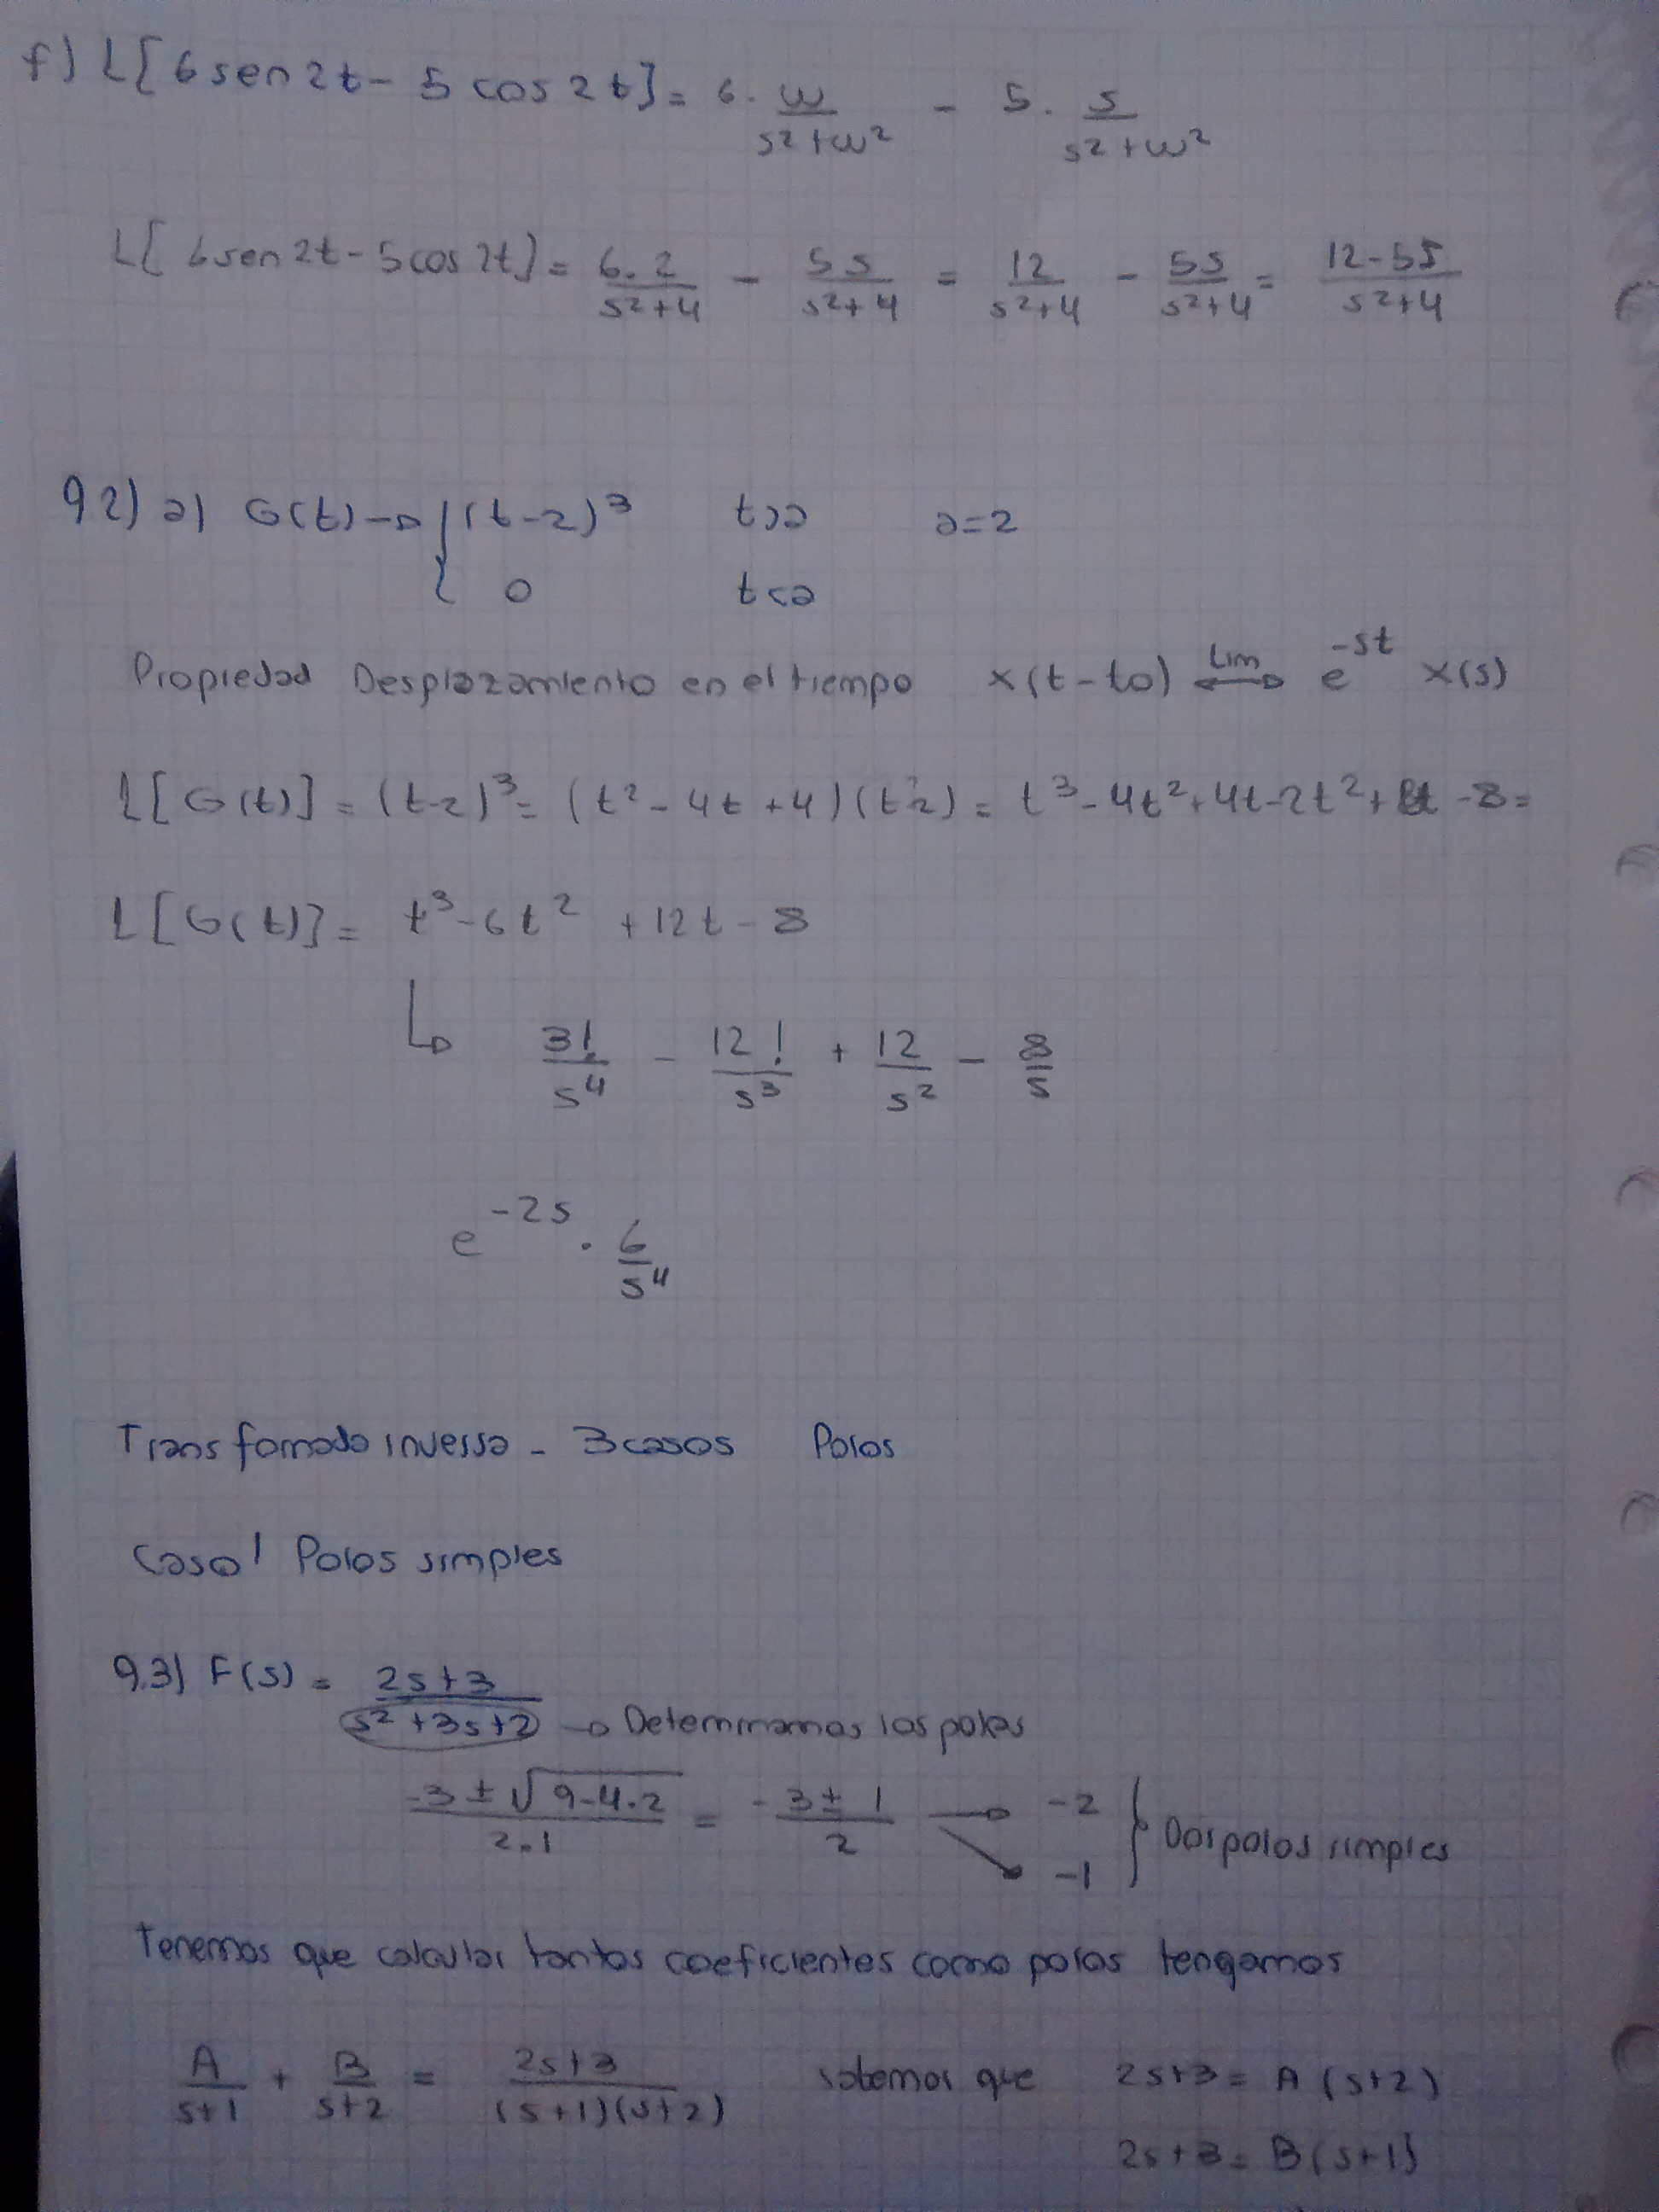 f) L[6sen2t - 5cos2t] = 6 · ω/(s²+ω²) - 5 · s/(s²+ω²)
L[6sen2t - 5cos2t] = 6·2/(s²+4) - 5s/(s²+4) = 12/(s²+4) - 5s/(s²+4) = (12-5s)/(s²+4)
92) a) G(t) → { (t-2)³ t>a a=2
0 t<a
Propiedad Desplazamiento en el tiempo x(t-to) ⟷ Lim e^-st x(s)
L[G(t)] = (t-2)³ = (t²-4t+4)(t-2) = t³-4t²+4t-2t²+8t-8 =
L[G(t)] = t³-6t²+12t-8
↳ 3!/s⁴ - 12!/s³ + 12/s² - 8/s
e^-2s · 6/s⁴
Transfomada inversa - 3 casos Polos
Caso 1 Polos simples
9.3) F(s) = (2s+3)/(s²+3s+2) → Determinamos los polos
(-3 ± √(9-4·2))/(2·1) = (-3±1)/2 → -2
→ -1 } Dos polos simples
Tenemos que calcular tantos coeficientes como polos tengamos
A/(s+1) + B/(s+2) = (2s+3)/((s+1)(s+2)) sabemos que 2s+3 = A(s+2)
2s+3 = B(s+1)